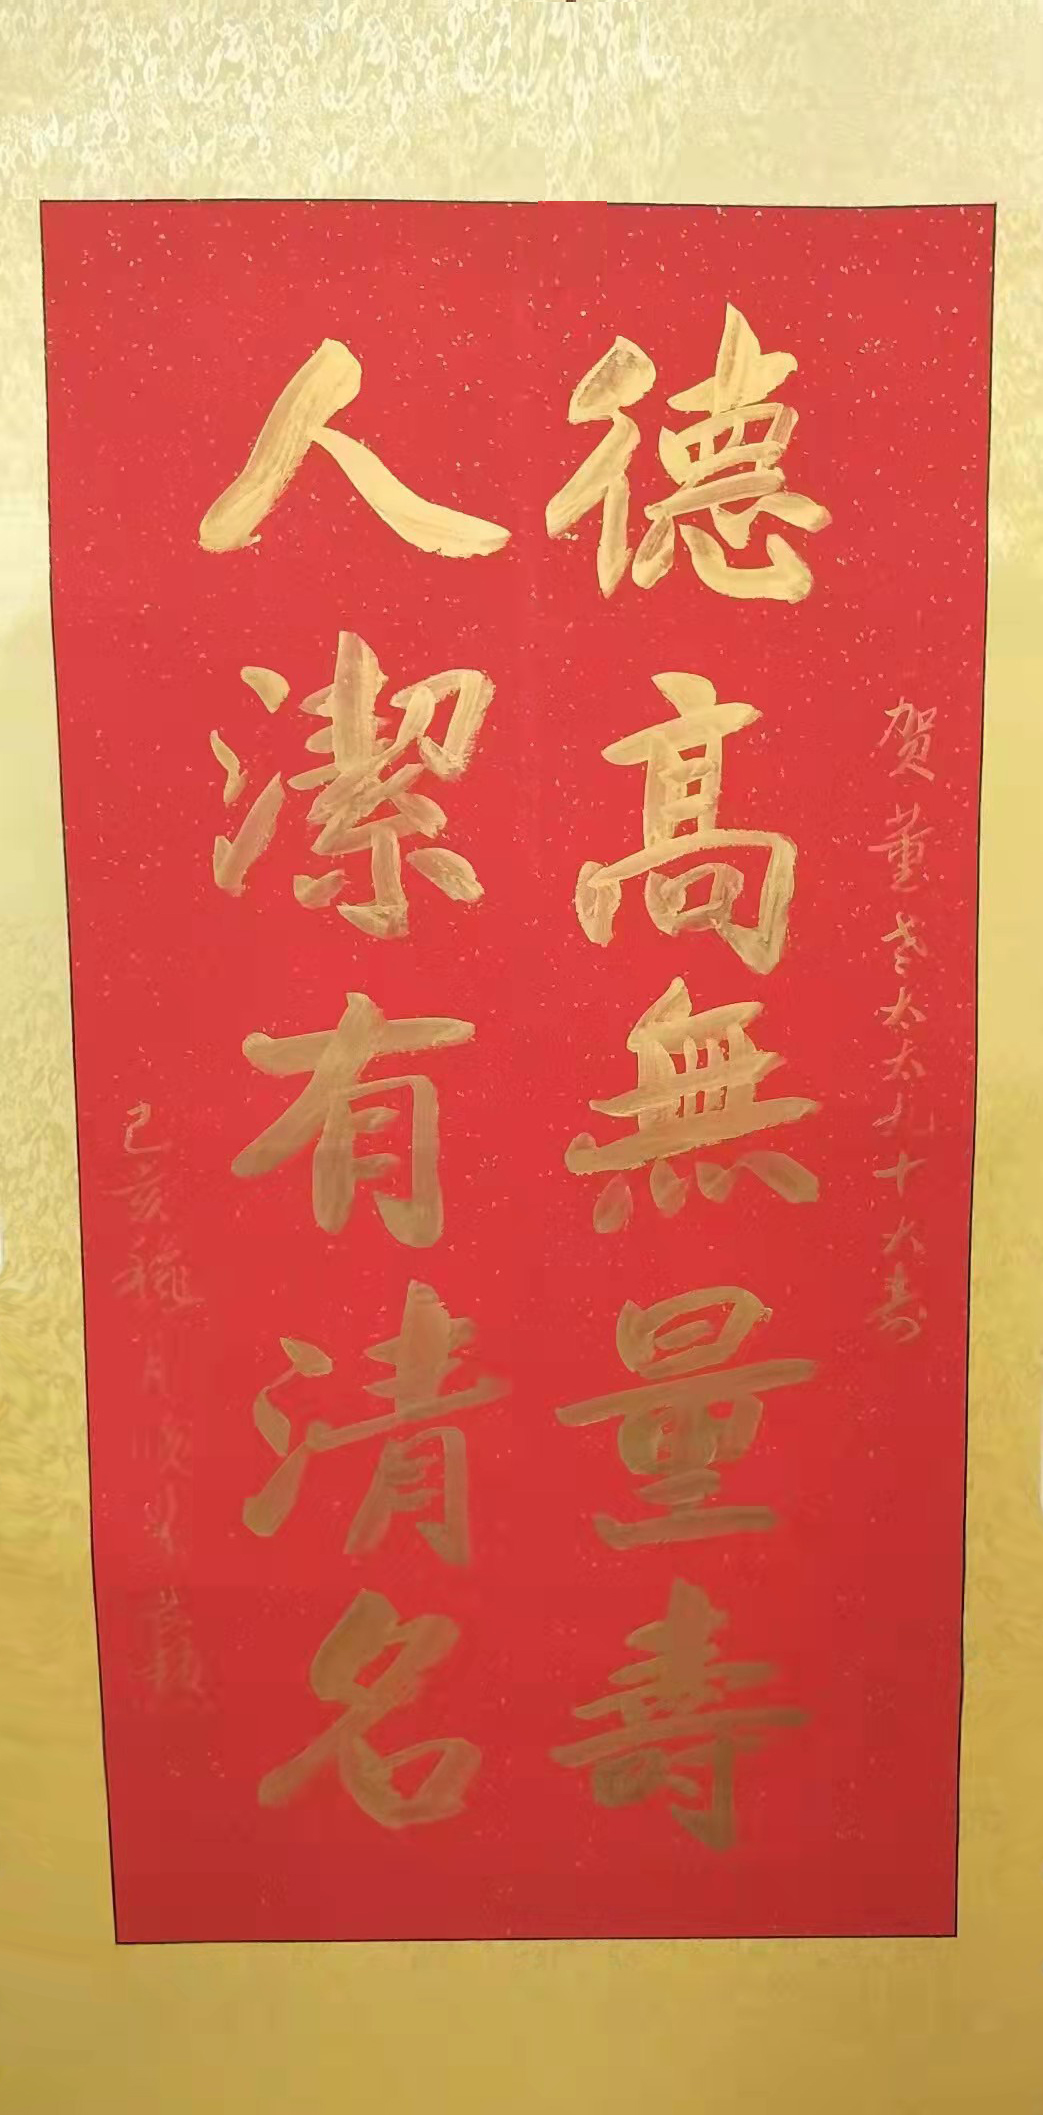 贺董老太太九十大寿
德高無量壽
人潔有清名
己亥